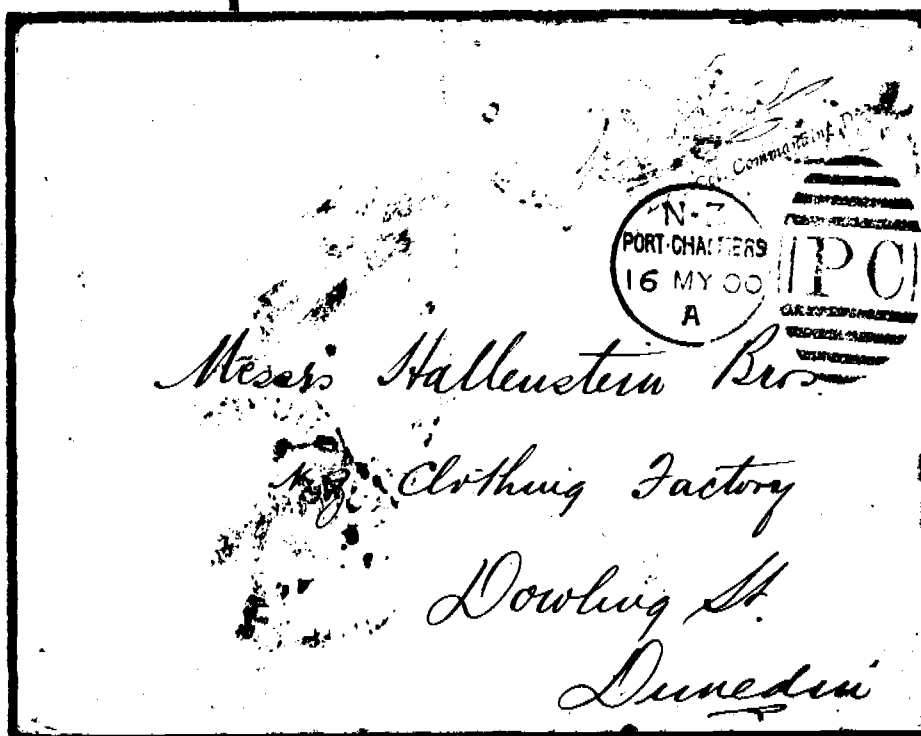 Commandant
N·Z
PORT·CHALMERS
16 MY 00
A
PC
Messrs Hallenstein Bros
N.Z. Clothing Factory
Dowling St.
Dunedin